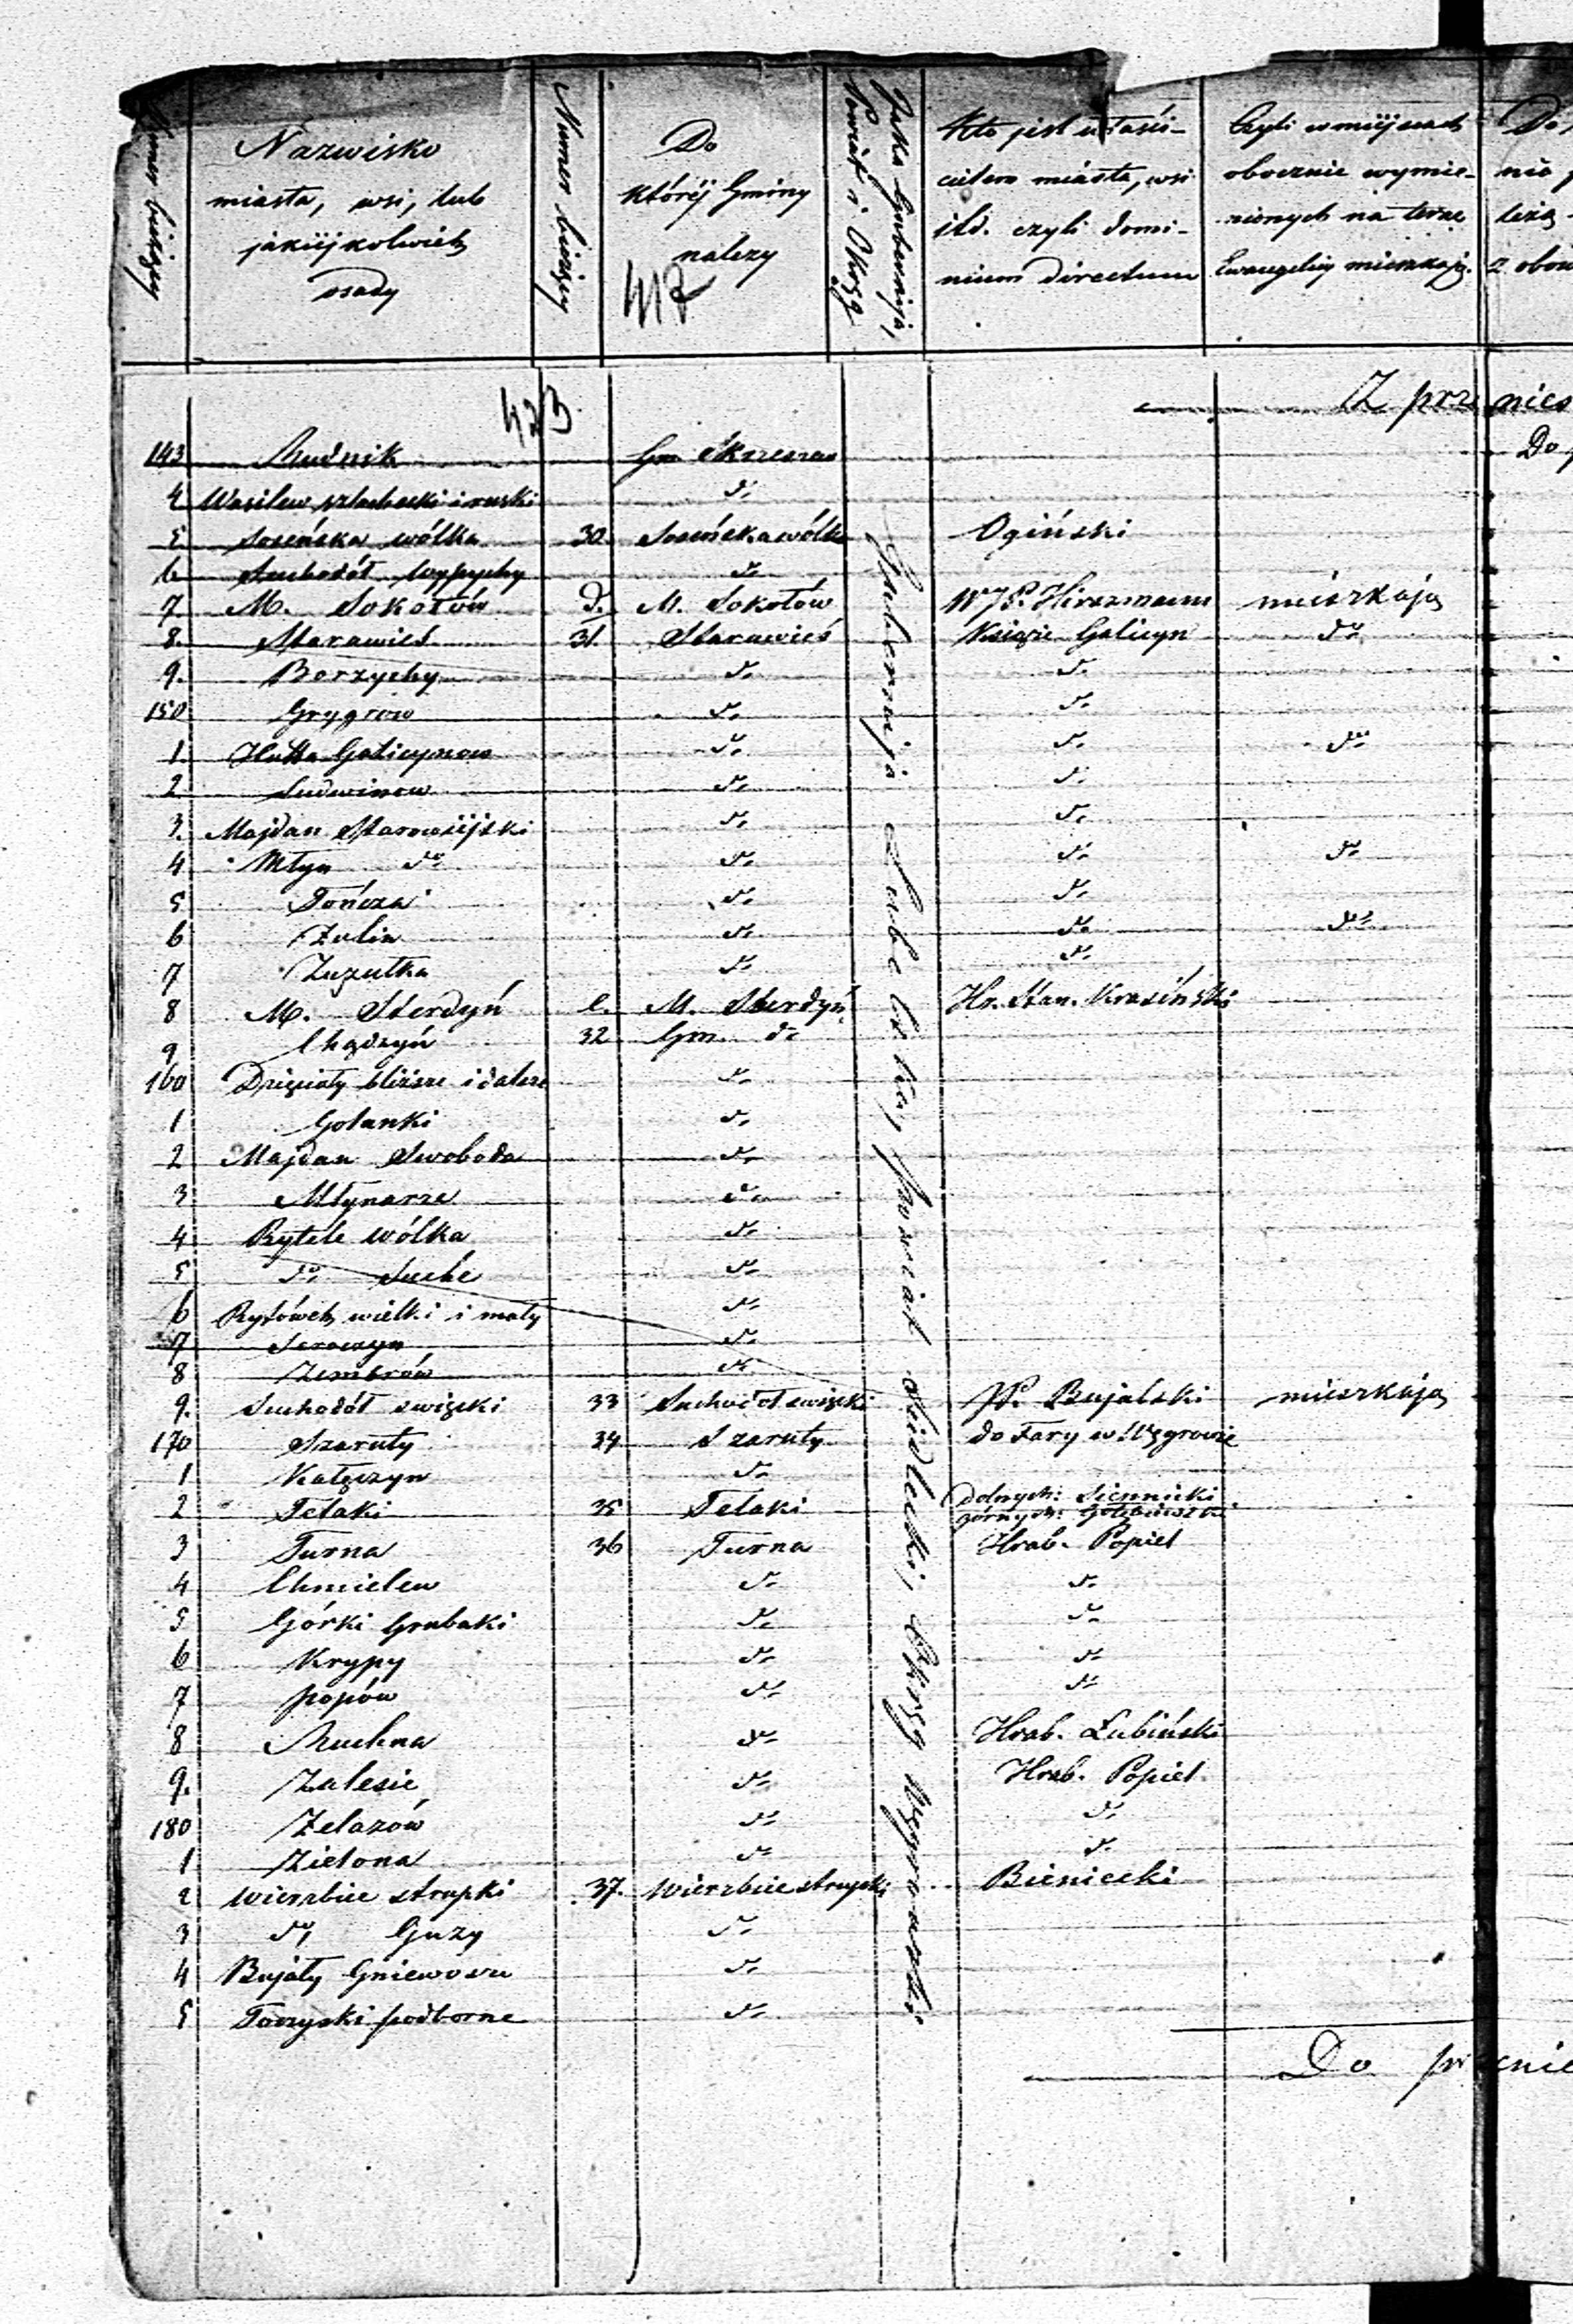 Numer bieżący
Nazwisko
miasta, wsi, lub
jakiejkolwiek
osady
Numer bieżący
Do
której Gminy
należy
417
Jaka Gubernija,
Powiat i Okrąg
Kto jest właści-
cielem miasta, wsi
itd. czyli domi-
nium directum
Czyli w miejscach
obocznie wymie-
nionych na teraz
Ewangelicy mieszkają.
423
Z prze nies
143 Rudnik Gm Skrzeszew
4 Wasilew szlachecki i ruski do
5 Soseńska wólka 30. Soseńska wólka Ogiński
6 Suchodół Wypychy do
7. M. Sokołów d. M. Sokołów W JP. Hirszmann mieszkają
8. Starawieś 31. Starawieś Książe Galicyn do
9. Borzychy do do
150 Grygrow do do
1. Hutta Galicynow do do do
2 Ludwinow do do
3. Majdan Starowsijski do do
4 Młyn do do do do
5 Tończa do do
6 Zulin do do do
7 Zuzułka do do
8 M. Sterdyń e. M. Sterdyń Hr. Stan. Krasiński
9 Chądzyń 32 Gm. do
160 Dzięcioły bliższe i dalsze do
1 Golanki do
2 Majdan Swoboda do
3 Młynarze do
4 Rytele Wólka do
5 do Suche do
6 wielki i mały do
7 Seroczyn do
8 Zembrów do
9. Suchodół swięcki 33 Suchodół swięcki JP. Bujalski mieszkają
170 Szaruty 34 Szaruty do Fary w Węgrowie
1 Kałęczyn do
2 Telaki 35 Telaki dolnych: Siennicki
górnych: Gołębiewski
3 Turna 36 Turna Hrab. Popiel
4 Chmielew do do
5 Górki Grubaki do do
6 Krypy do do
7 Popów do do
8 Ruchna do Hrab. Łubiński
9. Zalesie do Hrab. Popiel
180 Żelazów do do
1. Zielona do do
2 Wierzbice strupki 37. Wierzbice strupki Bieniecki
3 do Guzy do
4 Bujały Gniewosze do
5 Toczyski podborne do
Gubernija Lubelska, powiat Siedlecki, Okrąg Węgrowski.
Do prze nie